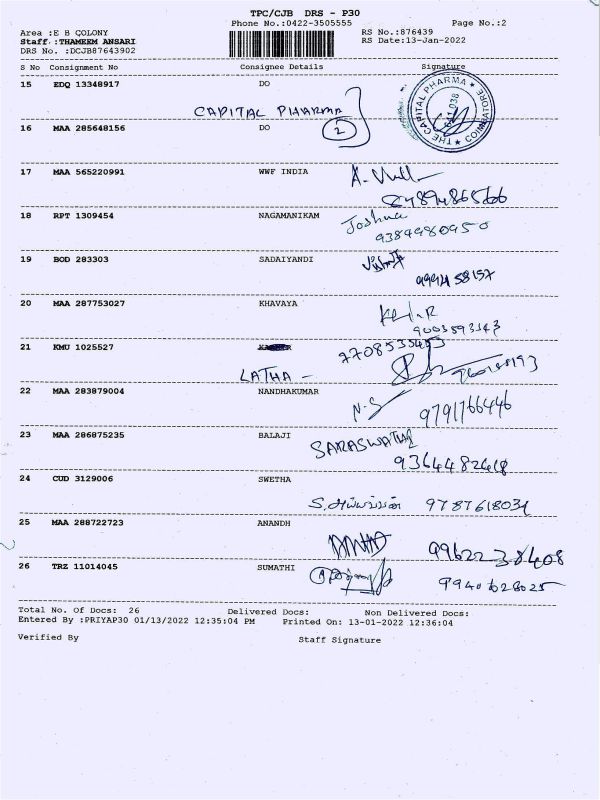 TPC/CJB DRS - P30
Phone No.:0422-3505555 Page No.:2
Area :E B COLONY RS No.:876439
Staff :THAMEEM ANSARI RS Date:13-Jan-2022
DRS No. :DCJB87643902
S No Consignment No Consignee Details Signature
15 EDQ 13348917 DO
CAPITAL PHARMA
THE CAPITAL PHARMA ★ COIMBATORE ★
2
16 MAA 285648156 DO
17 MAA 565220991 WWF INDIA
18 RPT 1309454 NAGAMANIKAM Joshua
9384980950
19 BOD 283303 SADAIYANDI
9994158157
20 MAA 287753027 KHAVAYA
9003593343
21 KMU 1025527
LATHA -
22 MAA 283879004 NANDHAKUMAR N.S 9791766446
23 MAA 286875235 BALAJI SARASWATHI
9364482618
24 CUD 3129006 SWETHA
9787618031
25 MAA 288722723 ANANDH
9962238408
26 TRZ 11014045 SUMATHI
9940628025
Total No. Of Docs: 26 Delivered Docs: Non Delivered Docs:
Entered By :PRIYAP30 01/13/2022 12:35:04 PM Printed On: 13-01-2022 12:36:04
Verified By Staff Signature